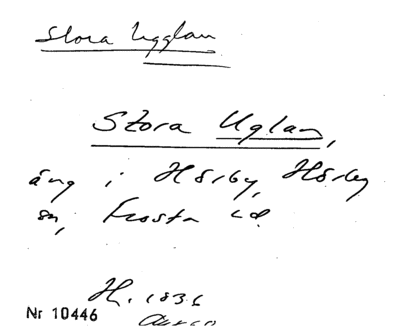 Stora Ugglan
Stora Uglan,
äng i Hörby, Hörby
sn, Frosta hd.
H. 1836
Nr 10446